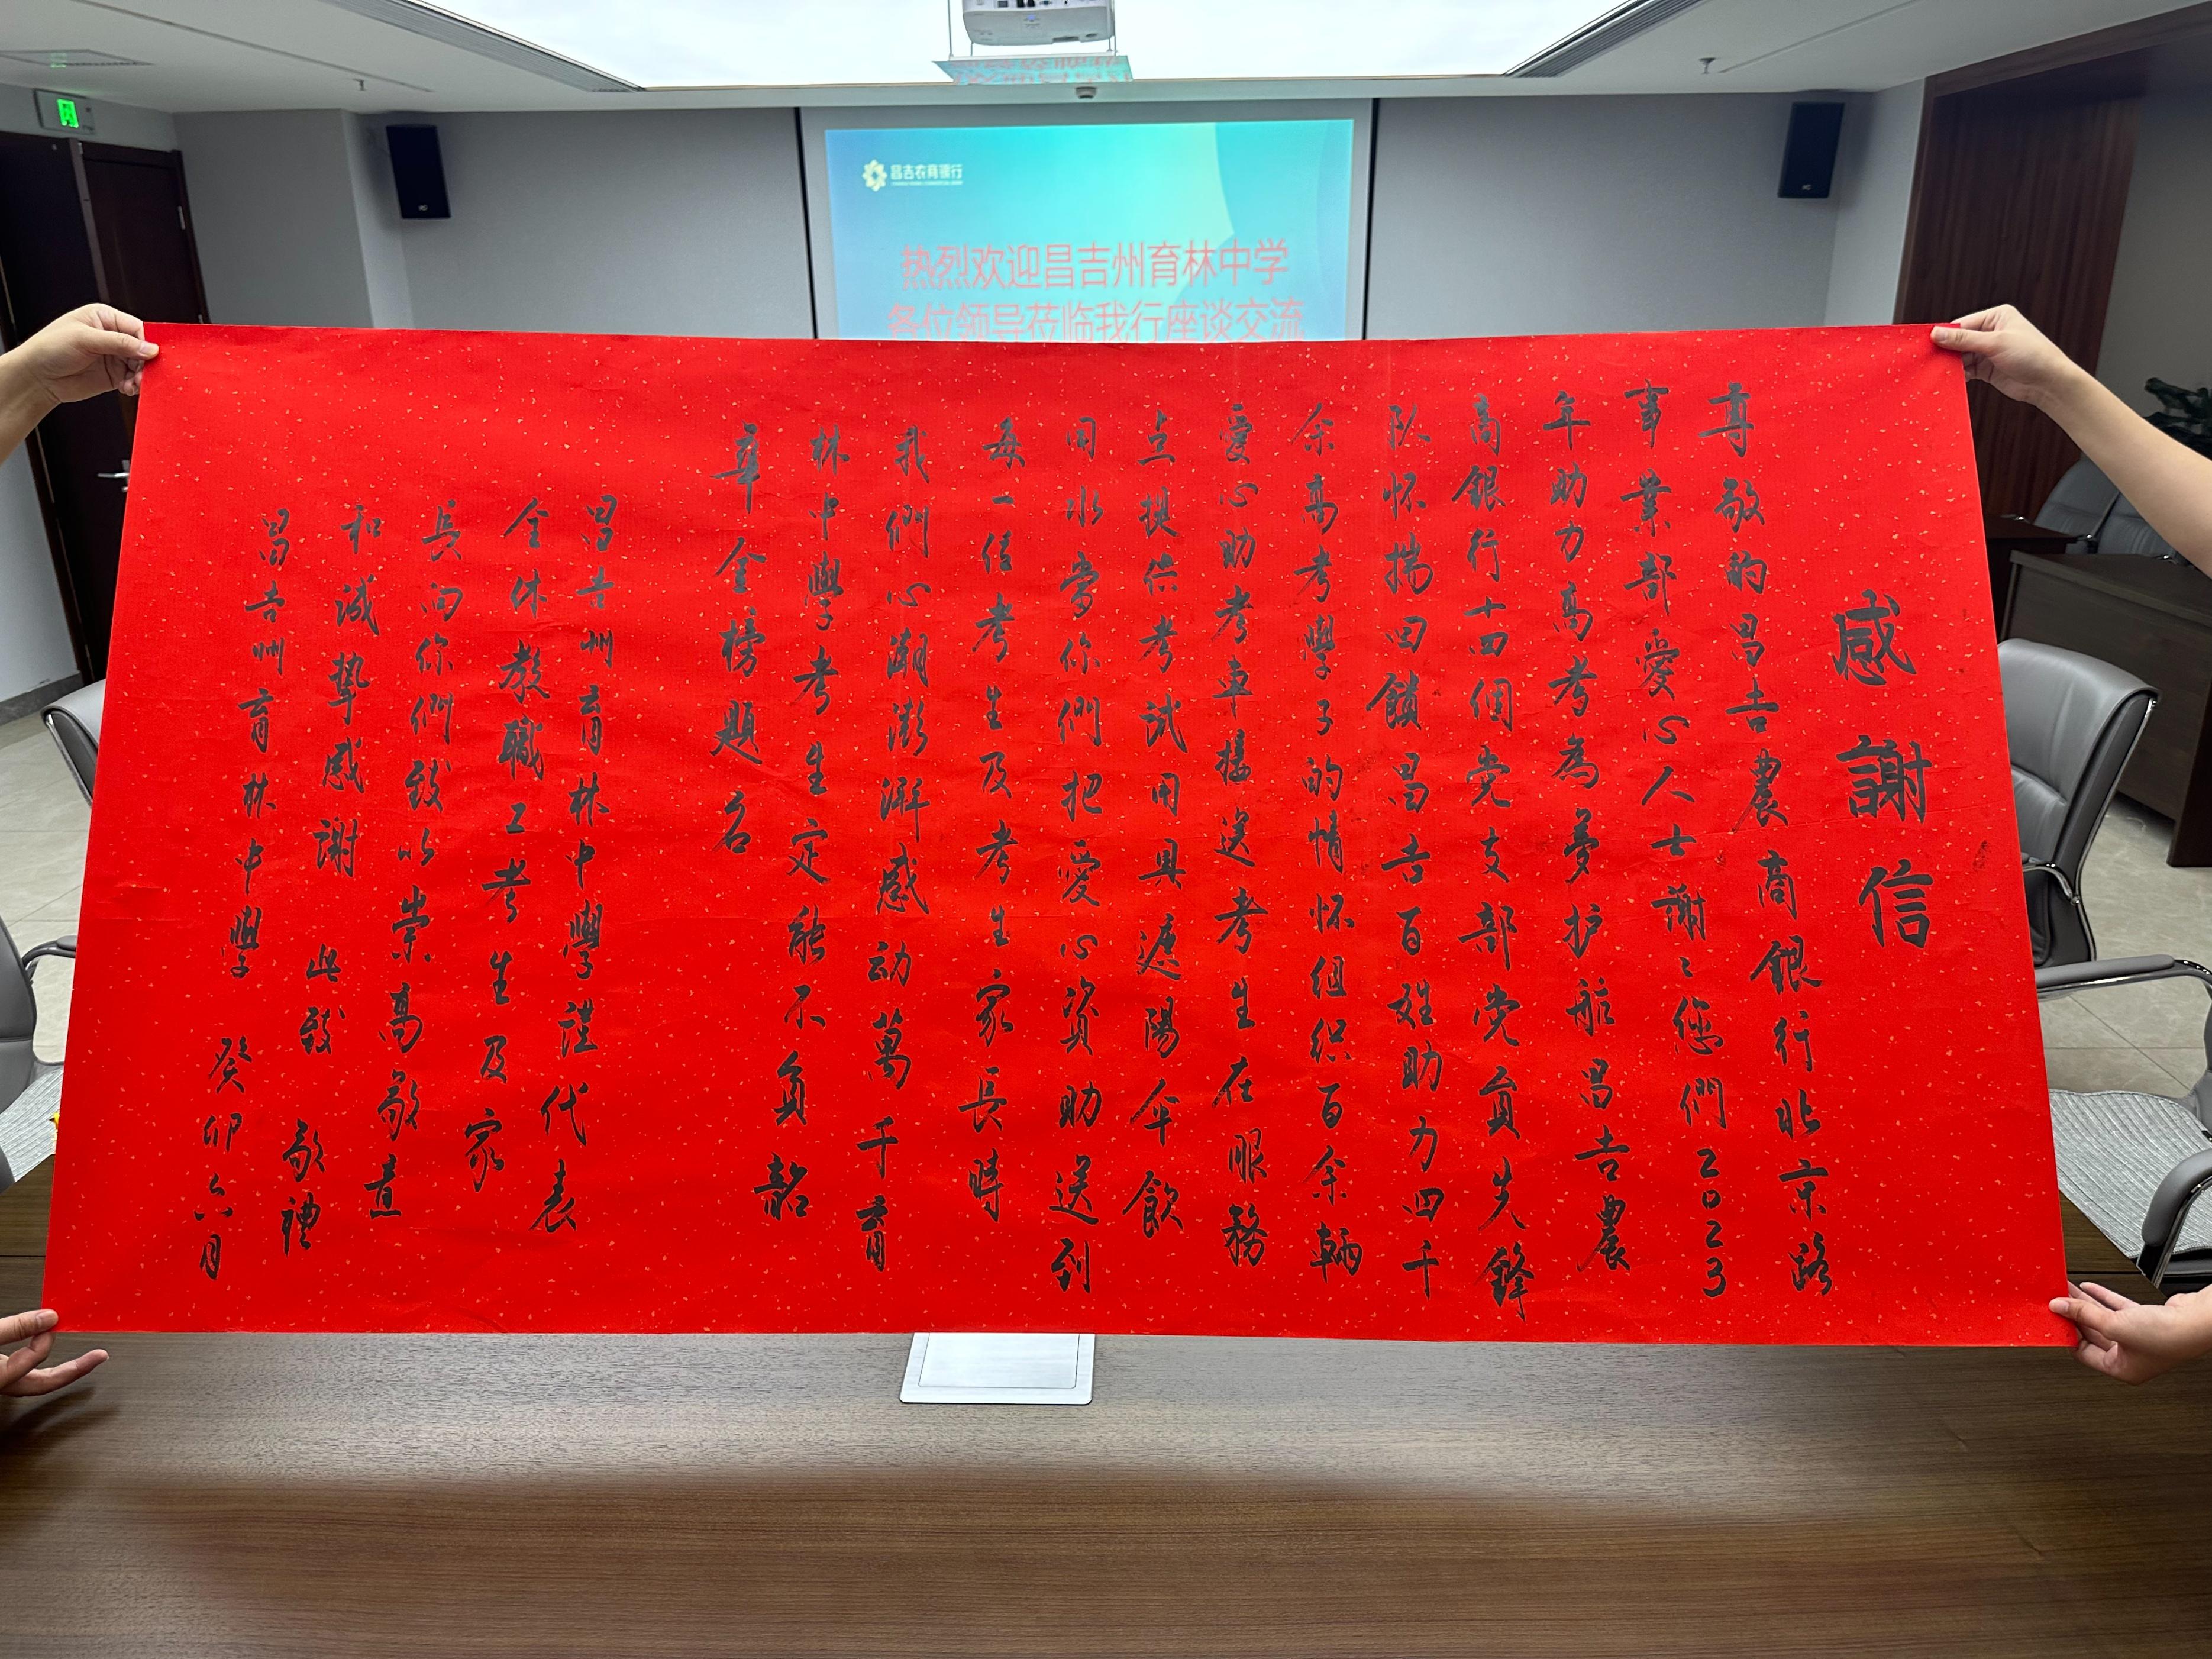 昌吉农商银行
热烈欢迎昌吉州育林中学
各位领导莅临我行座谈交流
感謝信
尊敬的昌吉農商銀行北京路
事業部愛心人士謝々您們2023
年助力高考為夢护航昌吉農
商銀行十四個党支部党員先鋒
队怀揣回饋昌吉百姓助力四千
余高考學子的情怀组织百余輛
愛心助考車接送考生在服務
点提供考试用具遮陽伞飲
用水當你們把愛心資助送到
每一位考生及考生家長時
我們心潮澎湃感动萬千育
林中學考生定能不負韶
華金榜題名
昌吉州育林中學謹代表
全体教職工考生及家
長向你們致以崇高敬意
和诚挚感謝 此致 敬禮
昌吉州育林中學 癸卯六月